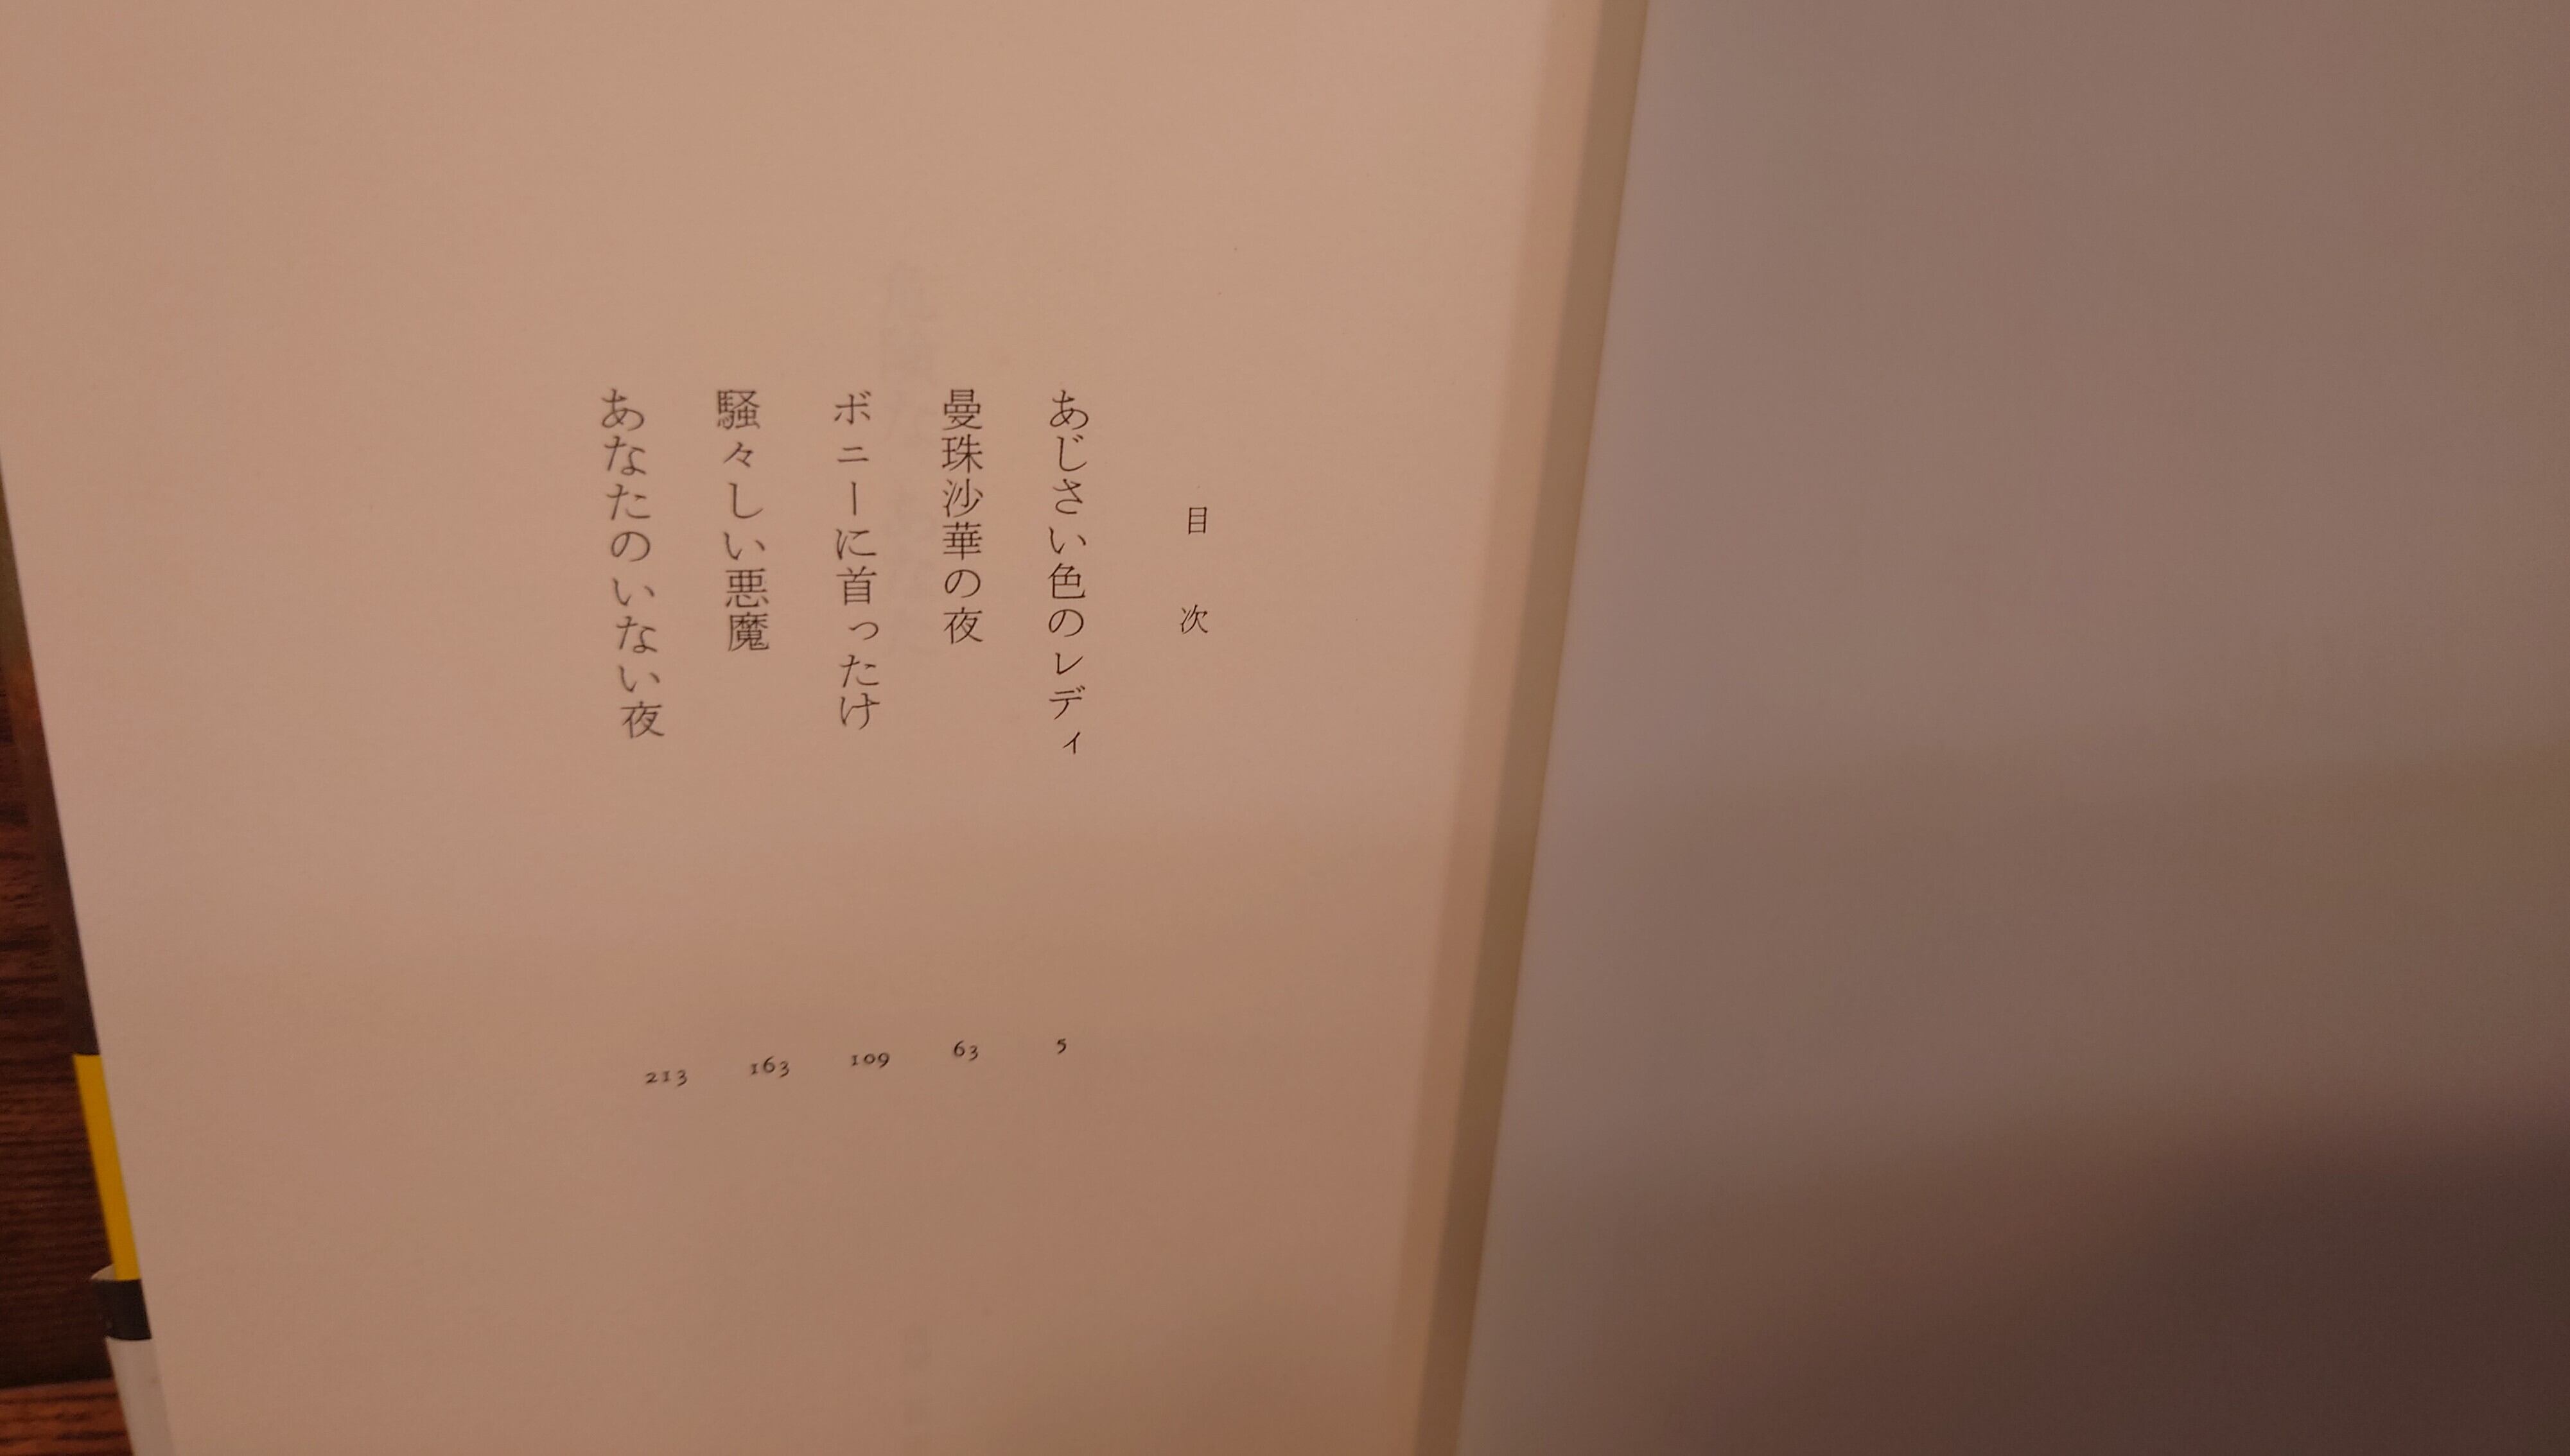 目次
あじさい色のレディ 5
曼珠沙華の夜 63
ボニーに首ったけ 109
騒々しい悪魔 163
あなたのいない夜 213